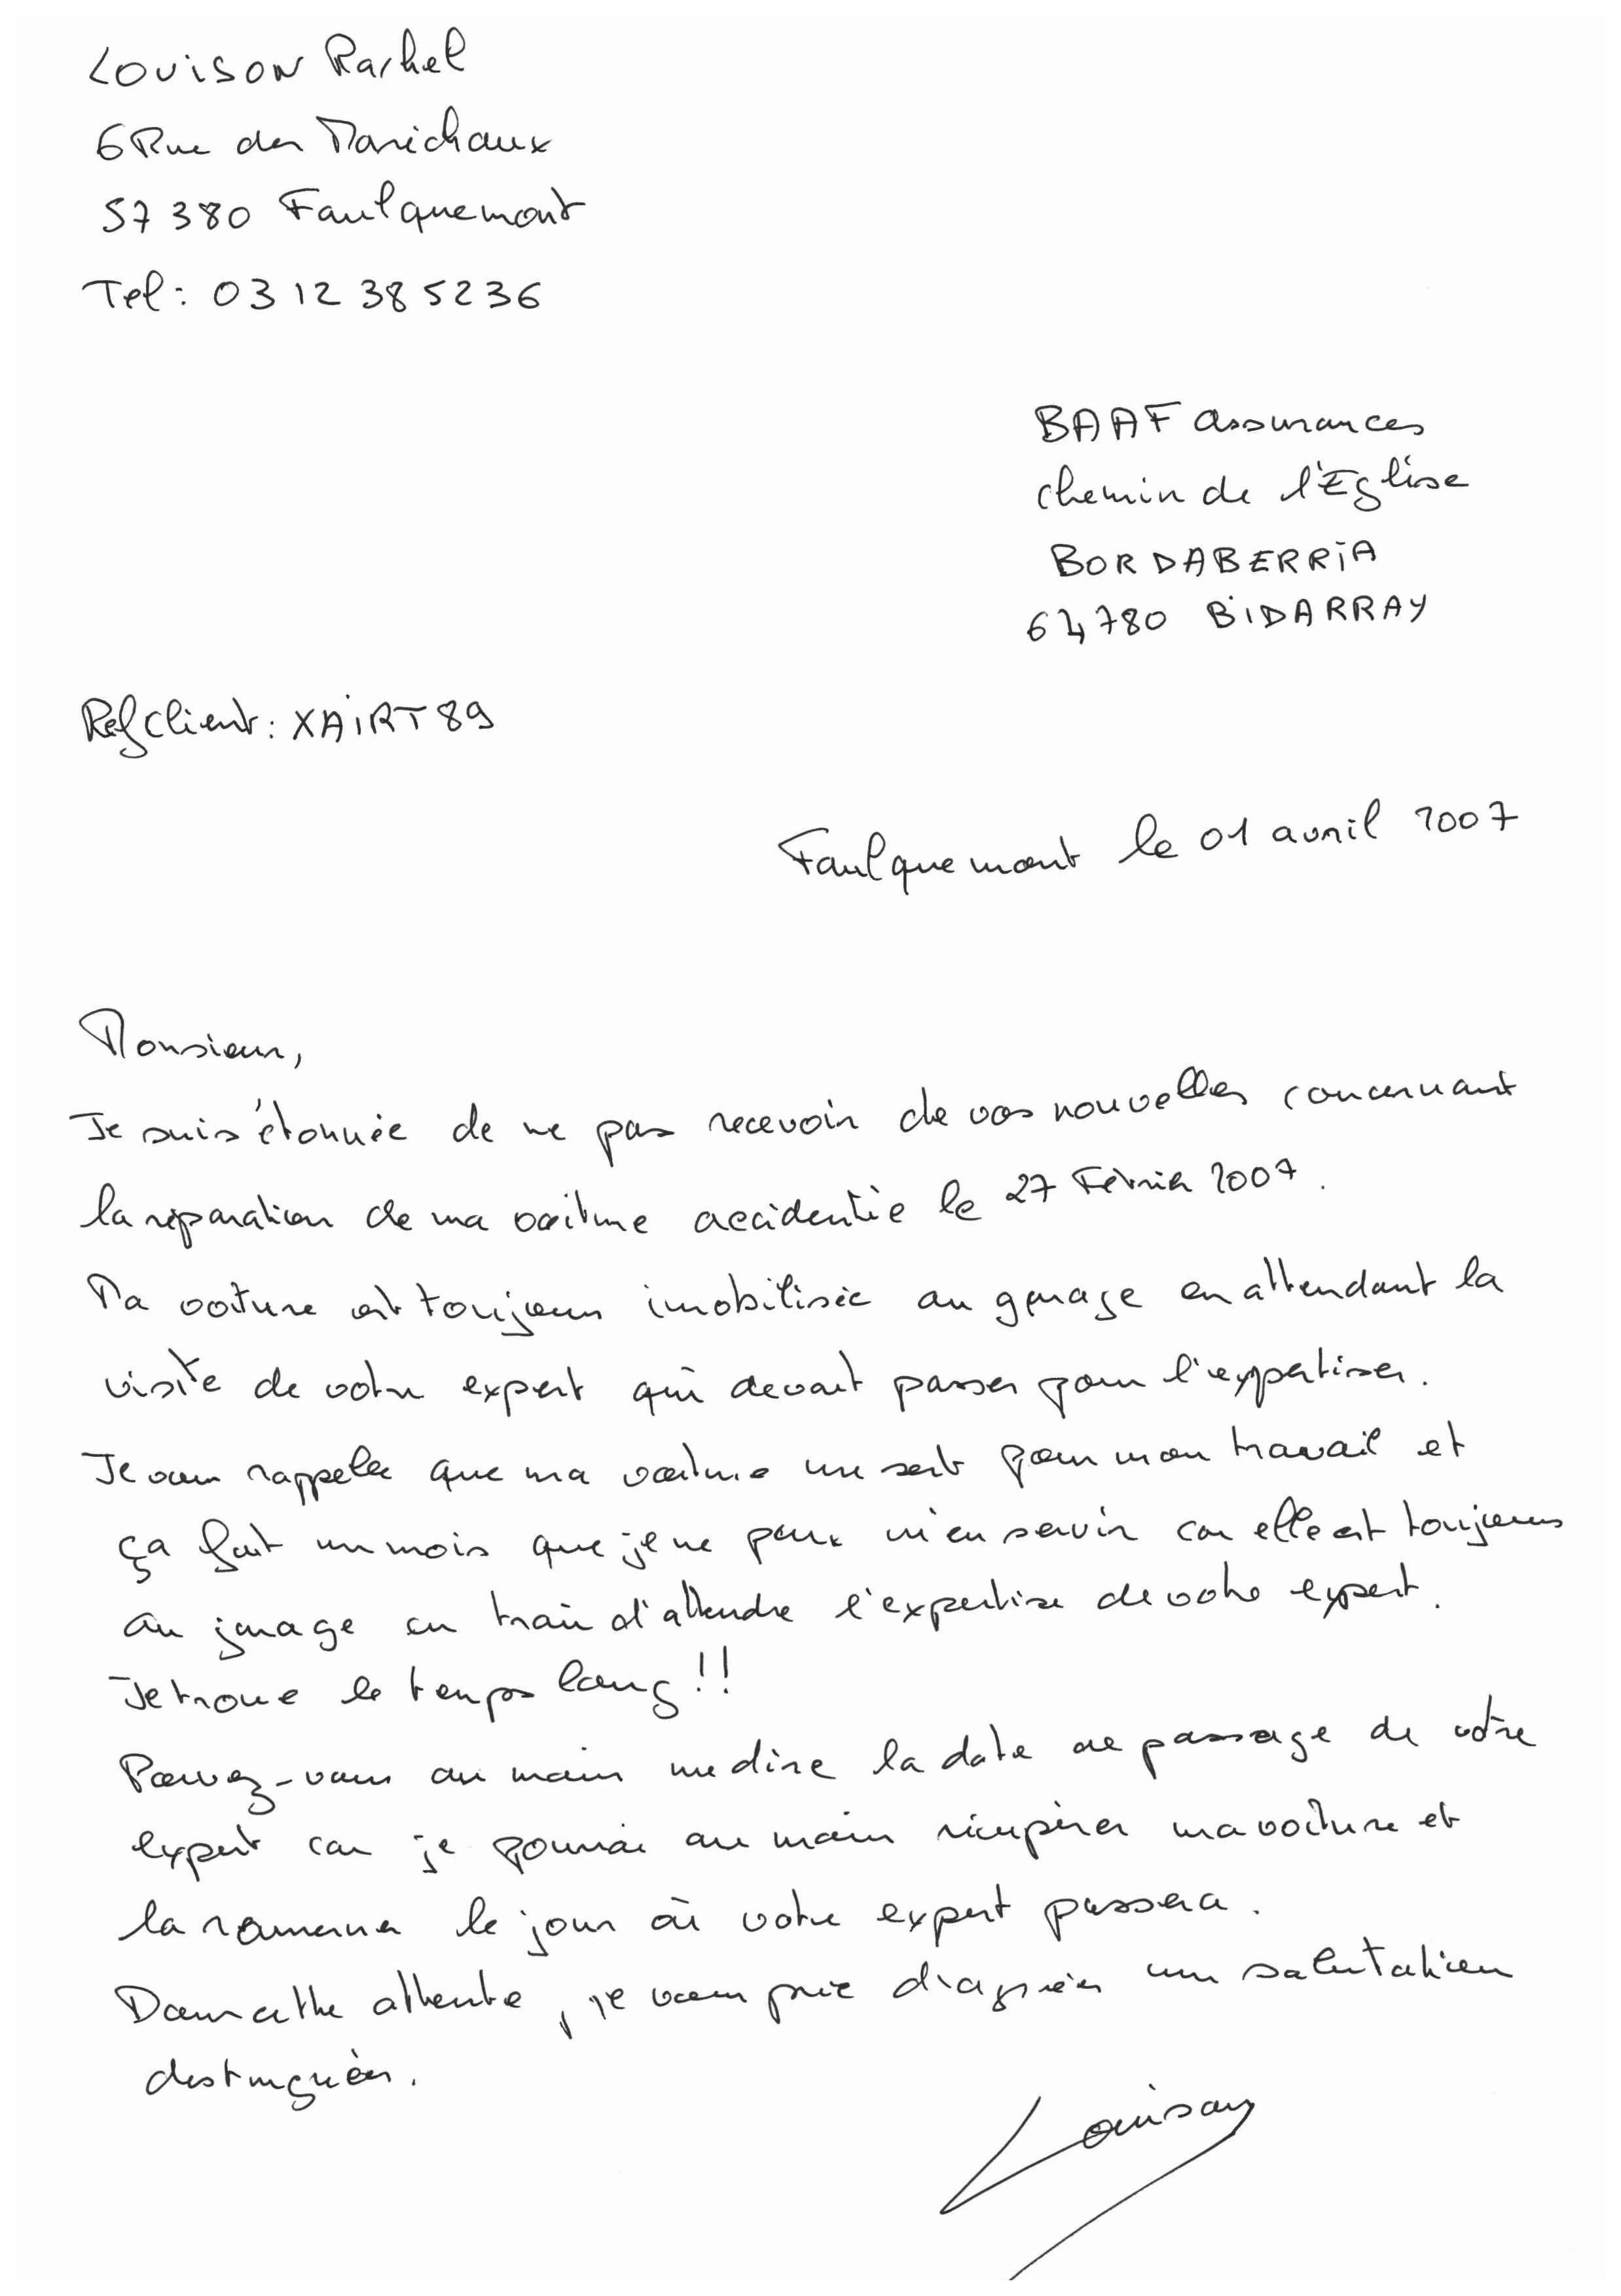 Louison Rachel
6 Rue des Maréchaux
57380 Faulquemont
Tel : 03 12 38 52 36
BAAF assurances
chemin de l'Eglise
BORDABERRIA
64780 BIDARRAY
Ref Client : XAIRT89
Faulquemont le 01 avril 2007
Monsieur,
Je suis étonnée de ne pas recevoir de vos nouvelles concernant
la réparation de ma voiture accidentée le 27 Février 2007.
Ma voiture est toujours imobilisée au garage en attendant la
visite de votre expert qui devait passer pour l'expertiser.
Je vous rappelle que ma voiture me sert pour mon travail et
ça fait un mois que je ne peux m'en servir car elle est toujours
au garage en train d'attendre l'expertise de votre expert.
Je trouve le temps long !!
Pouvez-vous au moins me dire la date de passage de votre
expert car je pourrai au moins récupérer ma voiture et
la ramener le jour où votre expert passera.
Dans cette attente, je vous prie d'agréer mes salutations
distinguées.
Louison